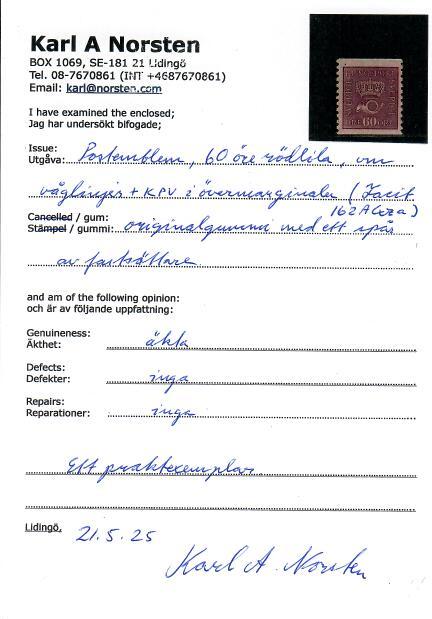 Karl A Norsten
BOX 1069, SE-181 21 Lidingö
Tel. 08-7670861 (INT +4687670861)
Email: karl@norsten.com
I have examined the enclosed;
Jag har undersökt bifogade;
Issue:
Utgåva: Postemblem, 60 öre rödlila, vm
våglinjer + KPV i övermarginalen (Facit
162Acxza)
Cancelled / gum:
Stämpel / gummi: originalgummi med ett spår
av fastsättare.
and am of the following opinion:
och är av följande uppfattning:
Genuineness:
Äkthet: äkta
Defects:
Defekter: inga
Repairs:
Reparationer: inga
Ett praktexemplar.
Lidingö, 21.5.25
Karl A. Norsten
60